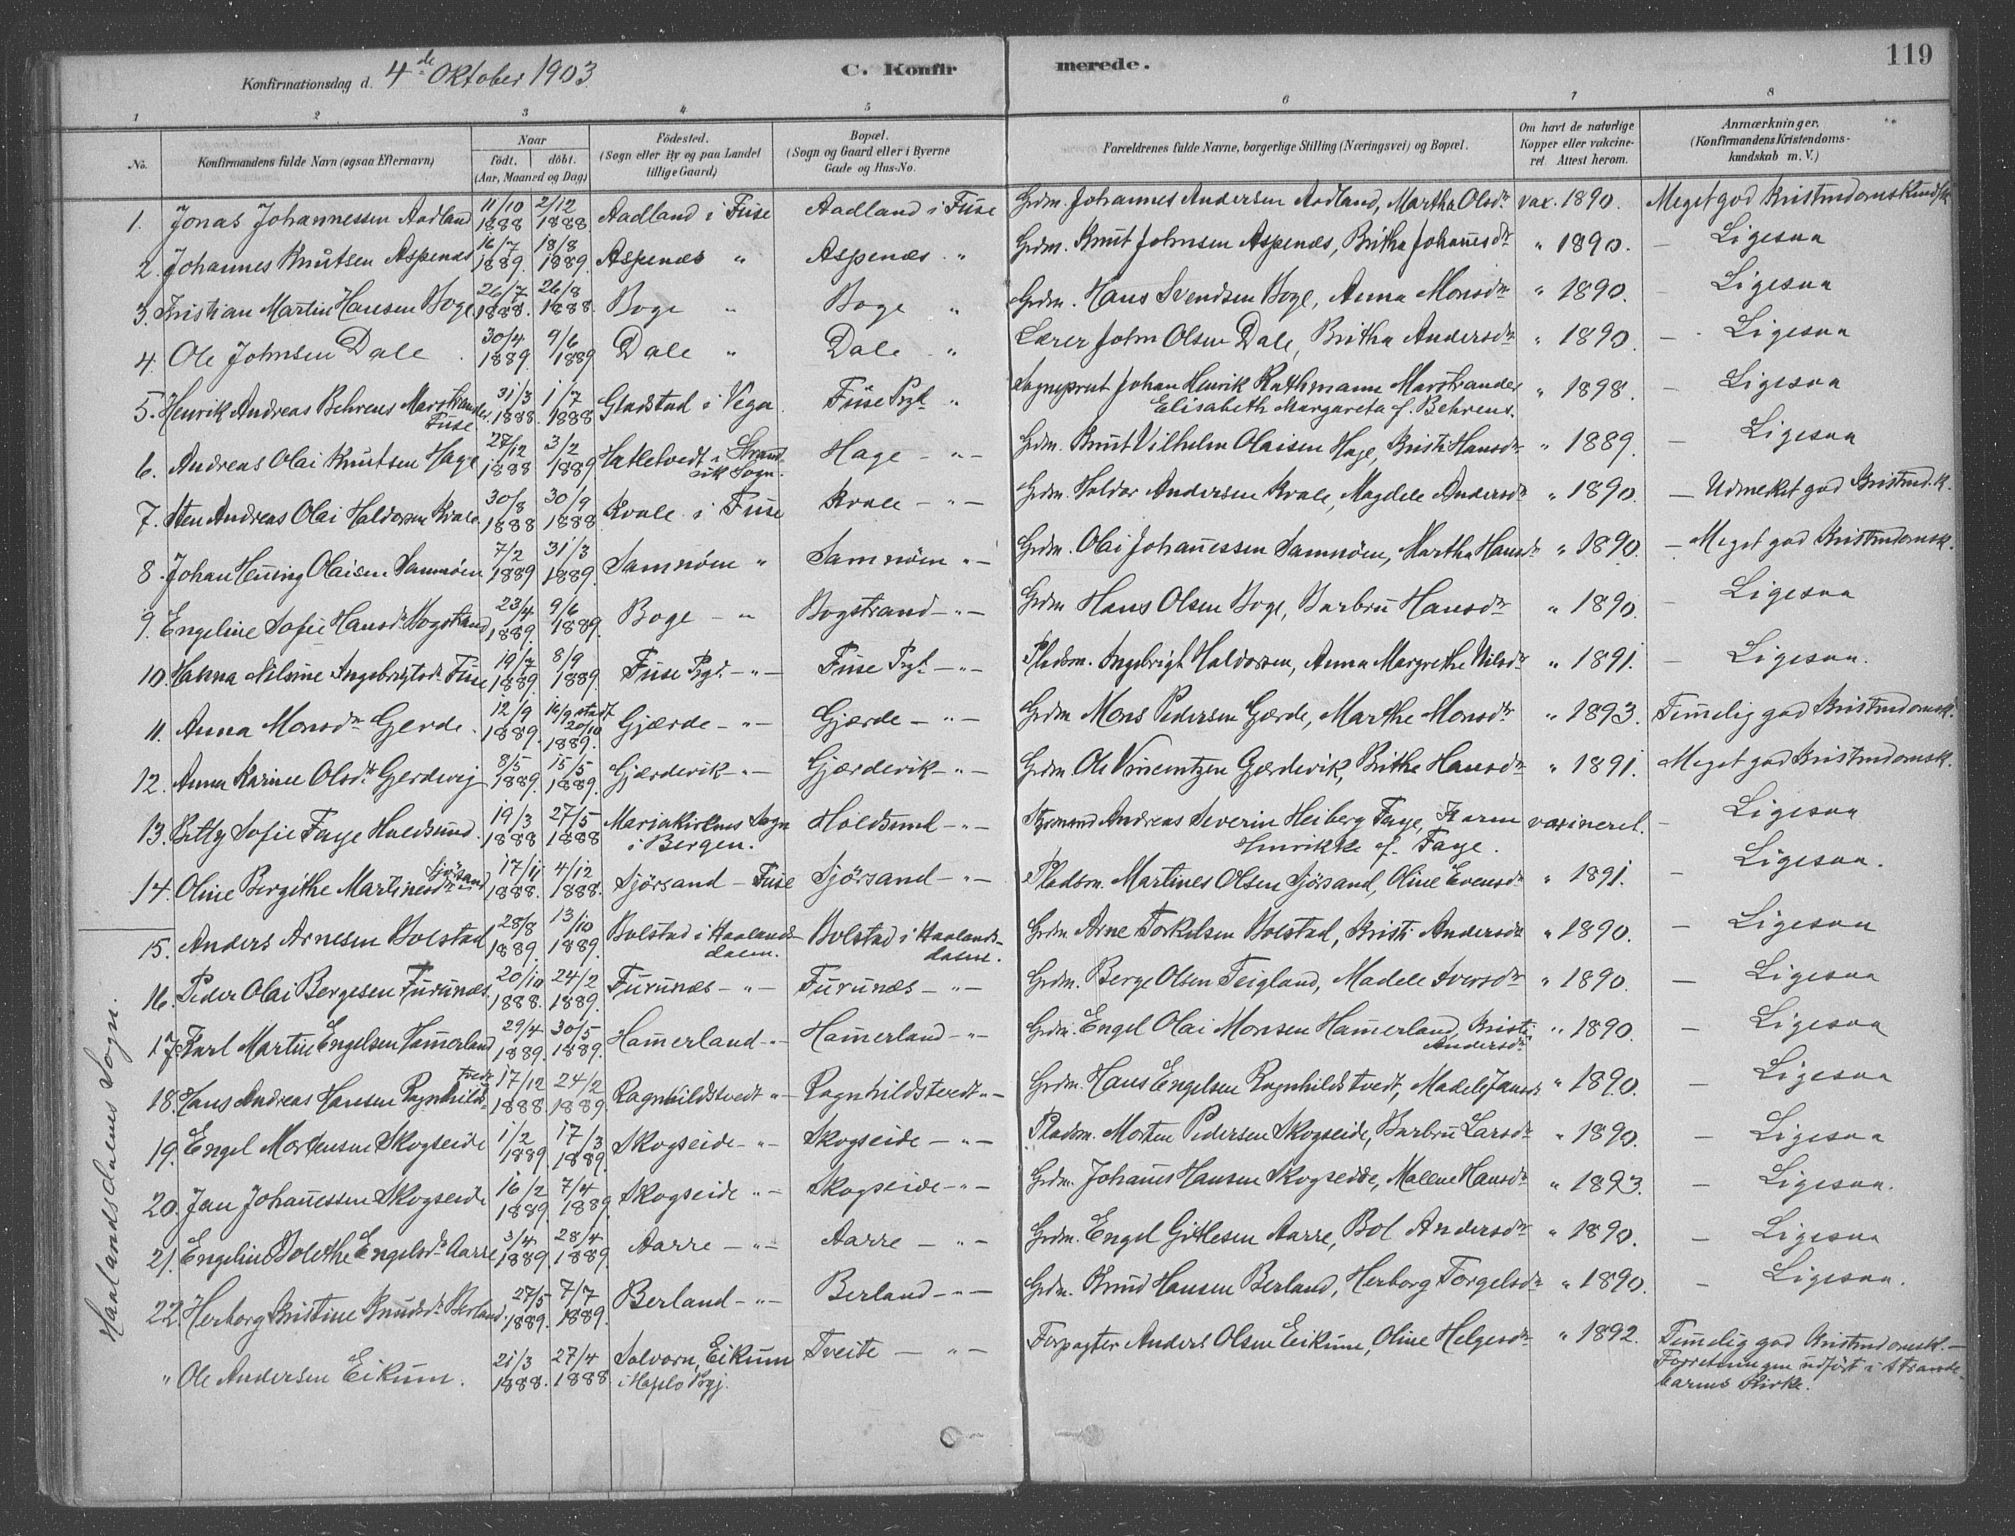 119
Konfirmationsdag d. 4de Oktober 1903. C. Konfirmerede.
1 2 3 4 5 6 7 8
No. Konfirmandens fulde Navn (ogsaa Efternavn) Naar født, døbt. (Aar, Maaned og Dag) Fødested. (Sogn eller By og paa Landet tillige Gaard) Bopæl. (Sogn og Gaard eller i Byerne Gade og Hus-No. Forældrenes fulde Navne, borgerlige Stilling (Næringsvei) og Bopæl. Om havt de naturlige Kopper eller vakcineret. Attest herom. Anmærkninger. (Konfirmandens Kristendomskundskab m. V.)
1. Jonas Johannessen Aadland 11/10 1888 2/12 1888 Aadland i Fuse Aadland i Fuse Grdm. Johannes Andersen Aadland, Martha Olsdr vax. 1890. Meget god Kristendomskundsk.
2. Johannes Knutsen Aspenæs 16/7 1889. 18/8 1889. Aspenæs " Aspenæs " Grdm. Knut Johnsen Aspenæs, Britha Johansdr " 1890. — Ligesaa
3. Kristian Martin Hansen Boge 26/7 1888. 26/8 1888. Boge " Boge " Grdm. Hans Svendsen Boge, Anna Monsdr " 1890. — Ligesaa
4. Ole Johnsen Dale 30/4 1889. 9/6 1889 Dale " Dale " Lærer John Olsen Dale, Britha Andersdr " 1890. — Ligesaa
5. Henrik Andreas Behrens Marstrander Fuse 31/3 1888. 1/7 1888 Gladstad i Vega Fuse Prgt. " Sogneprest Johan Henrik Rathmann Marstrander Elisabeth Margareta f. Behrens. " 1898. — Ligesaa
6. Andreas Olai Knutsen Hage 27/12 1888 3/2 1889 Hatletvedt i Strandvik Sogn. Hage — " — Grdm. Knut Vilhelm Olaisen Hage, Kristi Hansdr " 1889. — Ligesaa
7. Sten Andreas Olai Haldorsen Kvale 30/8 1888 30/9 1888 Kvale i Fuse Kvale — " — Grdm. Haldor Andersen Kvale, Magdele Andersdr " 1890. — Udmerket god Kristend.k.
8. Johan Hening Olaisen Samnøen 7/2 1889 31/3 1889. Samnøen " Samnøen " — Grdm. Olai Johannessen Samnøen, Martha Hansdr " 1890. — Meget god Kristendomsk.
9. Engeline Sofie Hansdr Bogstrand 23/4 1889. 9/6 1889. Boge — " Bogstrand — " — Grdm Hans Olsen Boge, Barbru Hansdr " 1890. — Ligesaa
10. Hanna Nilsine Ingebrigtsdr Fuse 19/7 1889. 8/9 1889. Fuse Prgt. — " — Fuse Prgt. — " — Pladsm. Ingebrigt Haldorsen, Anna Margrethe Nilsdr " 1891. — Ligesaa.
11. Anna Monsdr Gjerde. 12/9 1889. 16/9 stadf. 20/10 1889. Gjærde — " — Gjærde — " — Grdm. Mons Pedersen Gjærde, Marthe Monsdr " 1893. Temmelig god Kristendomsk.
12. Anna Karine Olsdr Gjerdevig 8/5 1889. 15/5 1889. Gjærdevik — " — Gjærdevik — " — Grdm Ole Vincentzen Gjærdevik, Brithe Hansdr " 1891. Meget god Kristendomsk.
13. Kitty Sofie Faye Holdsund. 19/3 1888 27/5 1888 Mariakirkens Sogn i Bergen. Holdsund — " — Styrmand Andreas Severin Heiberg Faye, Karen Henrikke f. Faye. vaxineret. — Ligesaa
14. Oline Bergithe Martinesdr Sjørsand 17/11 1888. 4/12 1888. Sjørsand — Fuse Sjørsand — " — Pladsm. Martines Olsen Sjørsand, Oline Evensdr " 1891. — Ligesaa.
Haalandsdalens Sogn.
15. Anders Arnesen Bolstad 28/8 1889. 13/10 1889. Bolstad i Haalandsdalen. Bolstad i Haalandsdalen. Grdm. Arne Torkelsen Bolstad, Kristi Andersdr " 1890. — Ligesaa
16. Peder Olai Bergesen Furunæs 20/10 1888. 24/2 1889. Furunæs — " — Furunæs — " — Grdm. Berge Olsen Teigland, Madele Iversdr " 1890. — Ligesaa
17. Karl Martin Engelsen Hamerland 29/4 1889. 30/5 1889. Hamerland — " — Hamerland — " — Grdm. Engel Olai Monsen Hamerland, Kristi Andersdr " 1890. — Ligesaa
18. Hans Andreas Hansen Ragnhildstvedt 17/12 1888. 24/2 1889. Ragnhildstvedt " — Ragnhildstvedt " — Grdm. Hans Engelsen Ragnhildstvedt, Madele Jansdr " 1890. — Ligesaa
19. Engel Mortensen Skogseide 1/2 1889. 17/3 1889. Skogseide — " — Skogseide — " — Pladsm. Morten Pedersen Skogseide, Barbru Larsdr " 1890. — Ligesaa
20. Jan Johannessen Skogseide 16/2 1889. 7/4 1889. Skogseide " — Skogseide — " — Grdm. Johans Hansen Skogseide, Malene Hansdr " 1893. — Ligesaa.
21. Engeline Bolethe Engelsdr Aarre 3/4 1889. 28/4 1889. Aarre — " — Aarre — " — Grdm. Engel Gitlesen Aarre, Bol Andersdr " 1890. — Ligesaa
22. Herborg Kristine Knudsdr Berland. 27/5 1889. 7/7 1889. Berland — " — Berland — " — Grdm. Knud Hansen Berland, Herborg Torgelsdr " 1890. — Ligesaa.
" Ole Andersen Eikum. 21/3 1888. 27/4 1888 Solvorn, Eikum i Hafslo Prgj. Tveite — " — Forpagter Anders Olsen Eikum, Oline Helgesdr " 1892. Temmelig god Kristendomsk. — Forretningen udført i Strandebarms Kirke.